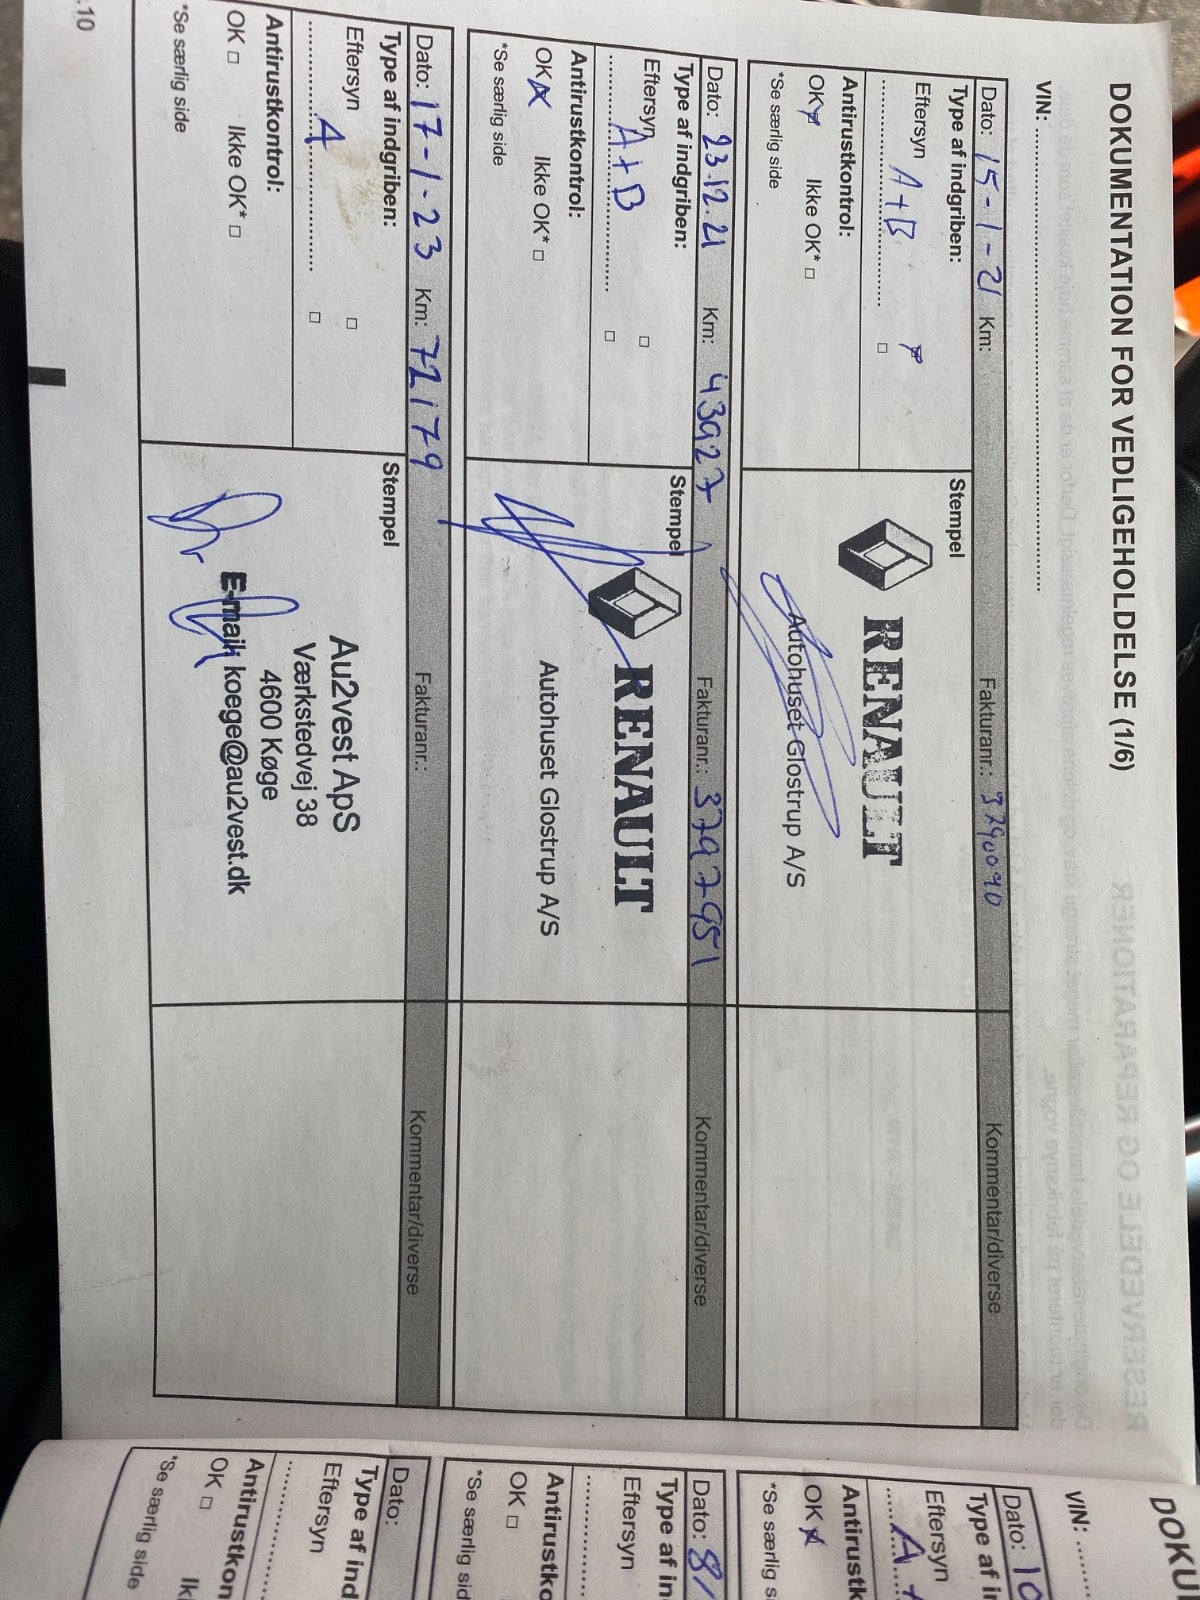 DOKUMENTATION FOR VEDLIGEHOLDELSE (1/6)
VIN: ............
Dato: 15-1-21 Km: Fakturanr.: 3790090 Kommentar/diverse
Type af indgriben:
Eftersyn A+B
Antirustkontrol:
OK Ikke OK* □
*Se særlig side
Stempel
RENAULT
Autohuset Glostrup A/S
Dato: 23.12.21 Km: 43927 Fakturanr.: 3797951 Kommentar/diverse
Type af indgriben:
Eftersyn □
A+B □
Antirustkontrol:
OK X Ikke OK* □
*Se særlig side
Stempel
RENAULT
Autohuset Glostrup A/S
Dato: 17-1-23 Km: 72179 Fakturanr.: Kommentar/diverse
Type af indgriben:
Eftersyn □
A □
Antirustkontrol:
OK □ Ikke OK* □
*Se særlig side
Stempel
Au2vest ApS
Værkstedvej 38
4600 Køge
E-mail: koege@au2vest.dk
.10
RESERVEDELE OG REPARATIONER
DOKU
VIN: ........
Dato: 10
Type af in
Eftersyn
A+
Antirustk
OK X
*Se særlig s
Dato: 8/
Type af in
Eftersyn
Antirustko
OK □
*Se særlig sid
Dato:
Type af ind
Eftersyn
Antirustkon
OK □ Ik
*Se særlig side